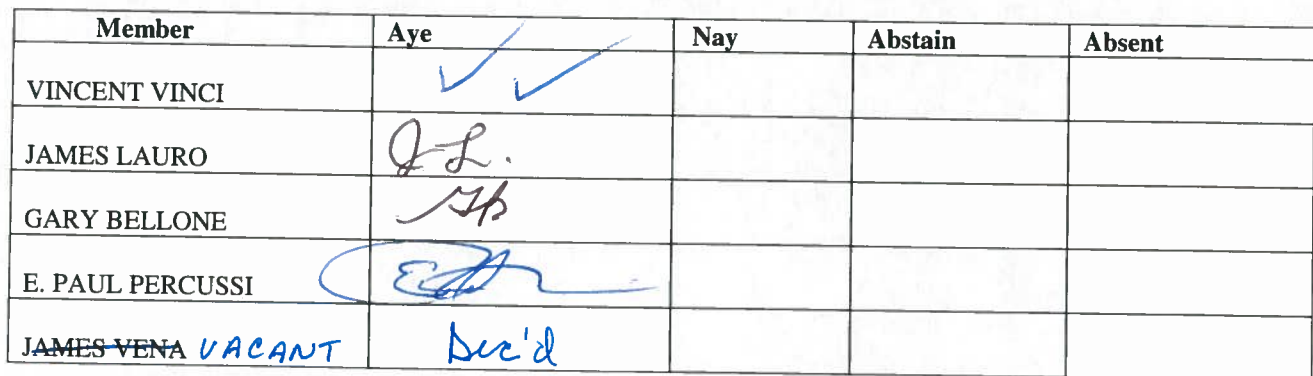 Member Aye Nay Abstain Absent
VINCENT VINCI ✓ ✓
JAMES LAURO J L.
GARY BELLONE GB
E. PAUL PERCUSSI
JAMES VENA VACANT Dec'd